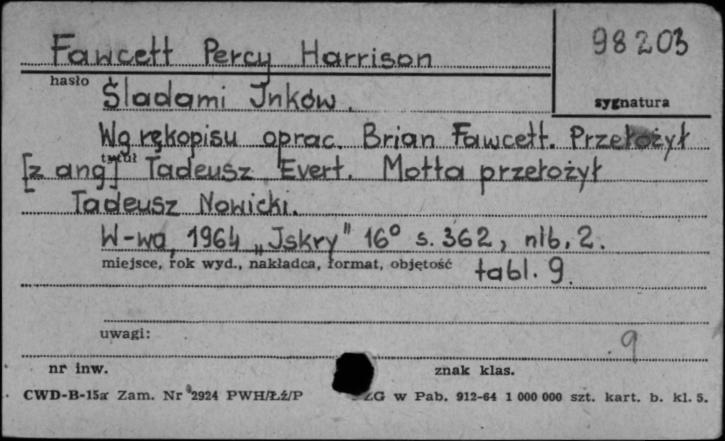 Fawcett Percy Harrison
98203
hasło
Śladami Inków.
sygnatura
Wg rękopisu oprac. Brian Fawcett. Przełożył
tytuł
[z ang] Tadeusz Evert. Motta przełożył
Tadeusz Nowicki.
W-wa, 1964 „Iskry" 16° s. 362, nlb. 2.
miejsce, rok wyd., nakładca, format, objętość
tabl. 9.
uwagi:
9
nr inw.
znak klas.
CWD-B-15a Zam. Nr 2924 PWH/Łź/P
ZG w Pab. 912-64 1 000 000 szt. kart. b. kl. 5.